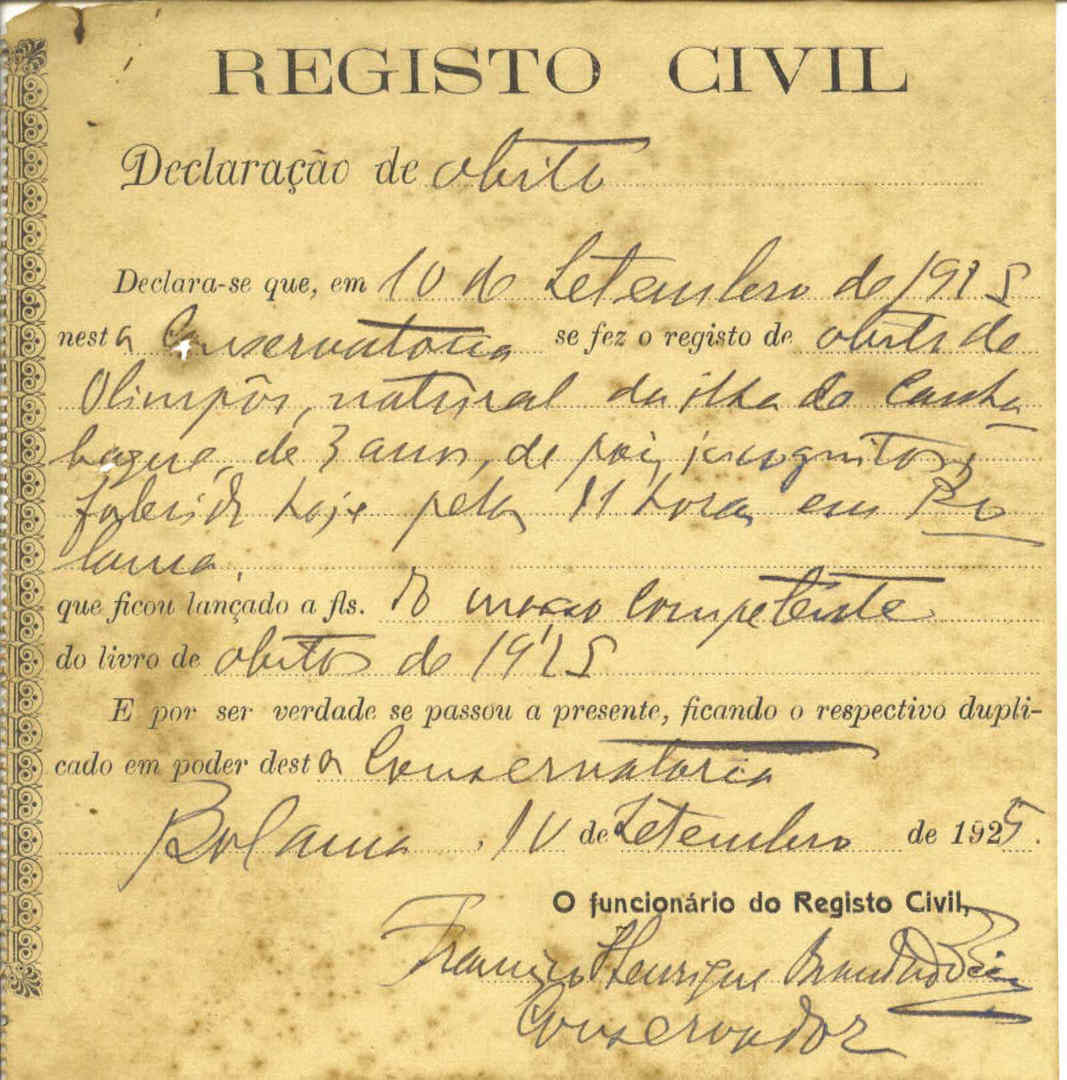 REGISTO CIVIL
Declaração de obito
Declara-se que, em 10 de Setembro de 1925
nesta Conservatoria se fez o registo de obito de
Olimpôs, natural da ilha de Canha
baque, de 3 anos, de pais incognitos,
falecido hoje pelas 11 horas em Bo
lama.
que ficou lançado a fls. do competente
do livro de obitos de 1925
E por ser verdade se passou a presente, ficando o respectivo dupli-
cado em poder desta Conservatoria
Bolama, 10 de Setembro de 1925.
O funcionário do Registo Civil,
Henrique
Conservador